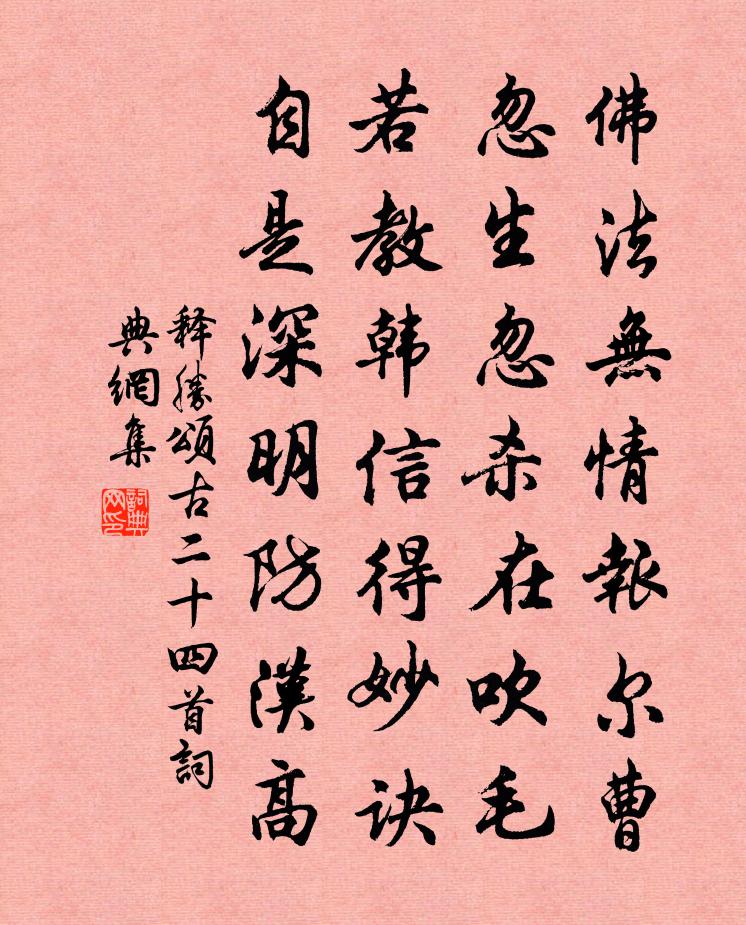 佛法無情報尔曹
忽生忽杀在吹毛
若教韩信得妙诀
自是深明防漢高
释勝頌古二十四首詞
典網集
詞典
网印